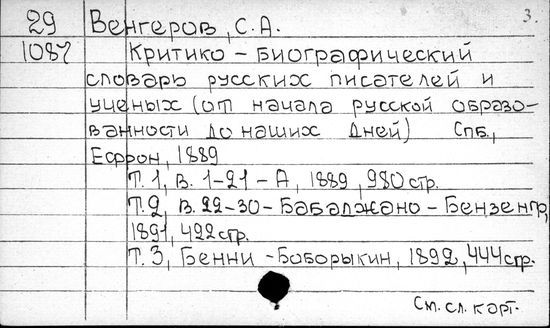 3.
29 Венгеров, С.А.
1087 Критико-биографический
словарь русских писателей и
ученых (от начала русской образо-
ванности до наших дней) Спб.,
Ефрон, 1889
Т. 1, в. 1-21-А, 1889, 980 стр.
Т. 2, в. 22-30-Бабаджано-Бензенгр,
1891, 422 стр.
Т. 3, Бенни-Боборыкин, 1892, 444 стр.
См. сл. карт.